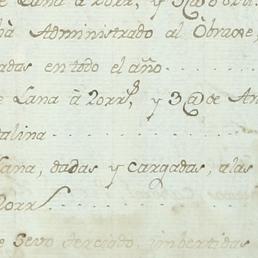 e Lana à 20rr.s, y
hà Administrado al Obraje,
adas en todo el año
e Lana à 20rr.s, y 3@ de An
talina
Lana, dadas y cargadas, alas
20rr.s
e Sevo derretido, imbertidas